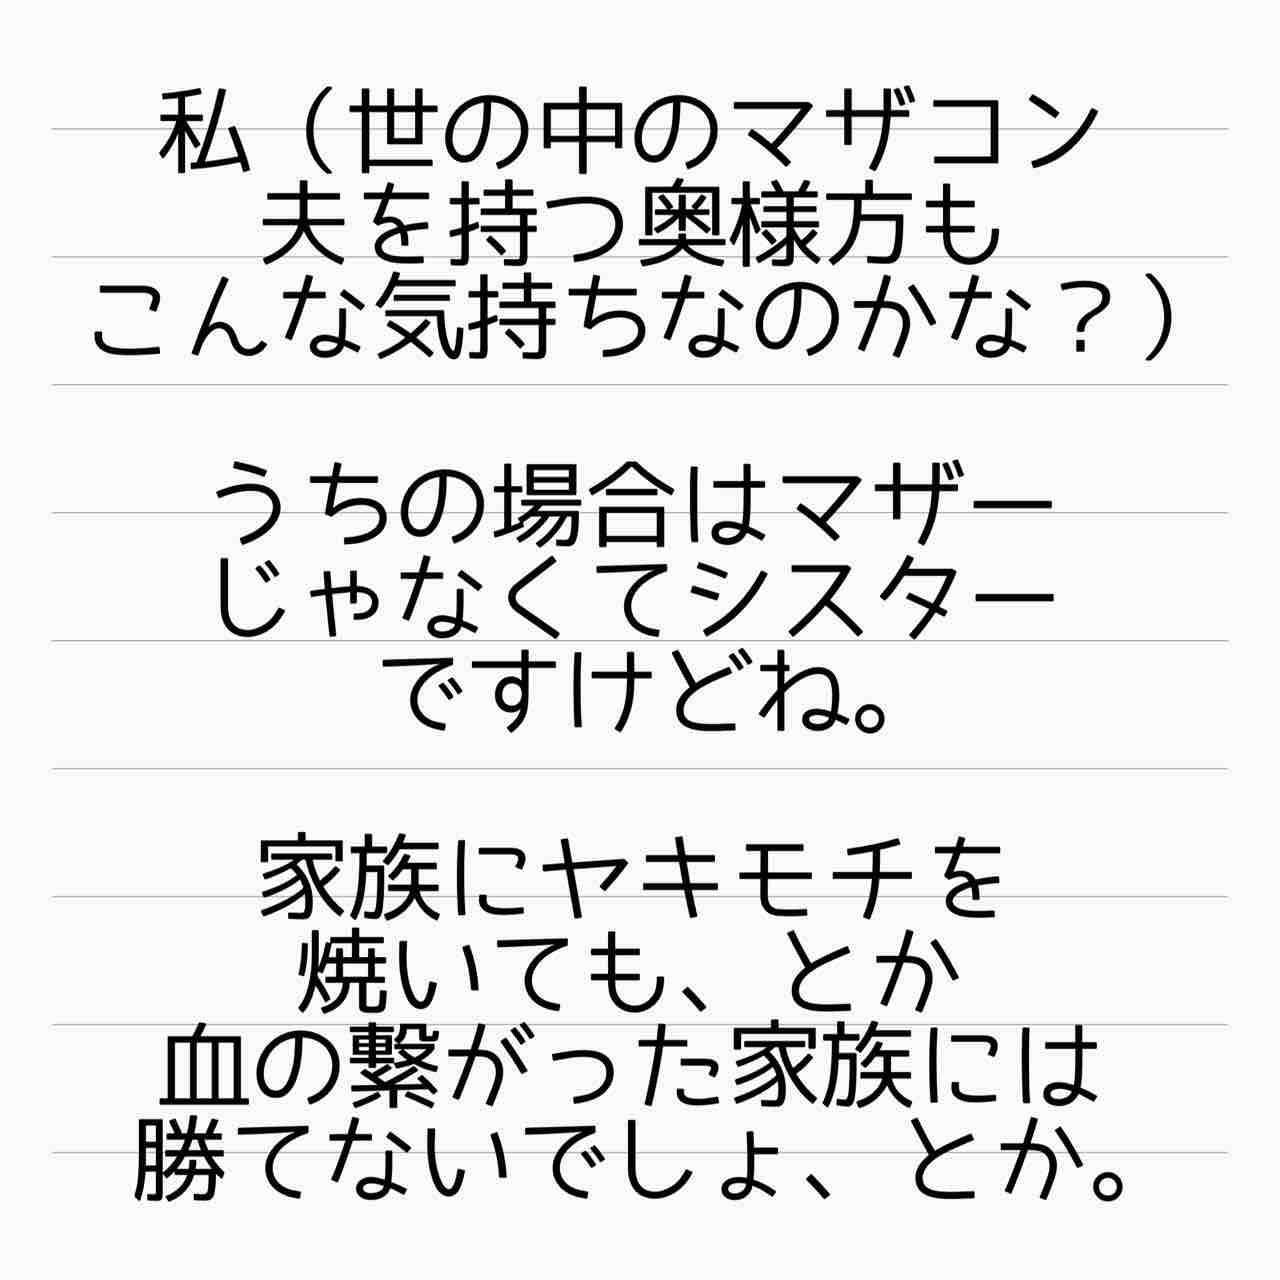 私（世の中のマザコン
夫を持つ奥様方も
こんな気持ちなのかな？）
うちの場合はマザー
じゃなくてシスター
ですけどね。
家族にヤキモチを
焼いても、とか
血の繋がった家族には
勝てないでしょ、とか。